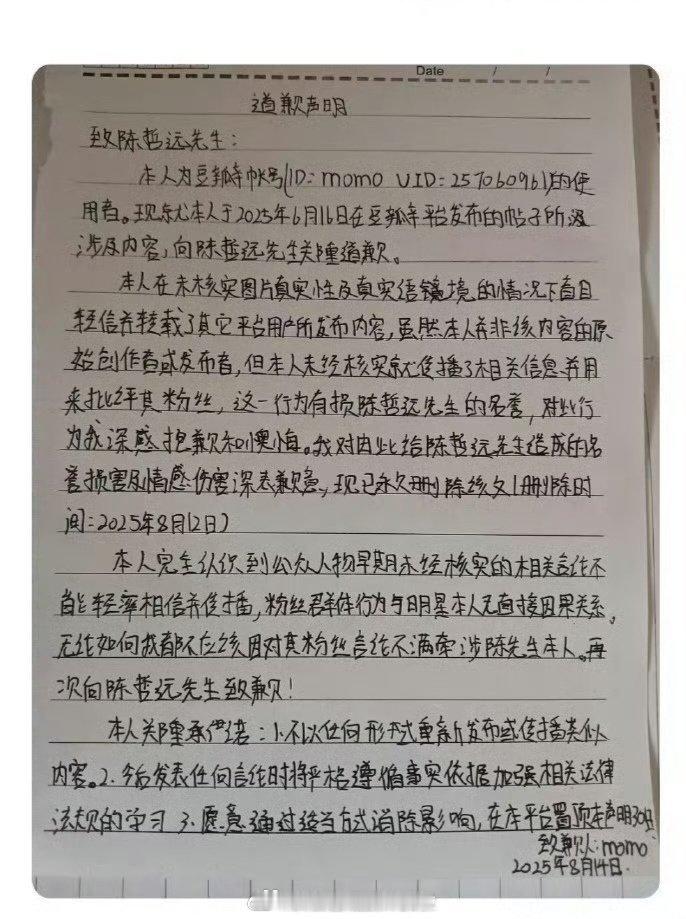 Date / /
道歉声明
致陈哲远先生：
本人为豆瓣帐号(ID：momo UID：257060961)的使
用者。现就本人于2025年6月16日在豆瓣平台发布的帖子所
涉及内容，向陈哲远先生郑重道歉。
本人在未核实图片真实性及真实语境的情况下盲目
轻信并转载了其它平台用户所发布内容，虽然本人并非该内容的原
始创作者或发布者，但本人未经核实就传播了相关信息并用
来批评其粉丝，这一行为有损陈哲远先生的名誉，对此行
为我深感抱歉和懊悔。我对因此给陈哲远先生造成的名
誉损害及情感伤害深表歉意，现已永久删除该文(删除时
间：2025年8月12日)
本人完全认识到公众人物早期未经核实的相关言论不
能轻率相信并传播，粉丝群体行为与明星本人无直接因果关系。
无论如何我都不应该因对其粉丝言论不满牵涉陈先生本人。再
次向陈哲远先生致歉！
本人郑重承诺：1.不以任何形式重新发布或传播类似
内容。2.今后发表任何言论时将严格遵循事实依据加强相关法律
法规的学习 3.愿意通过适当方式消除影响，在本平台置顶本声明30日
致歉人：momo
2025年8月14日.